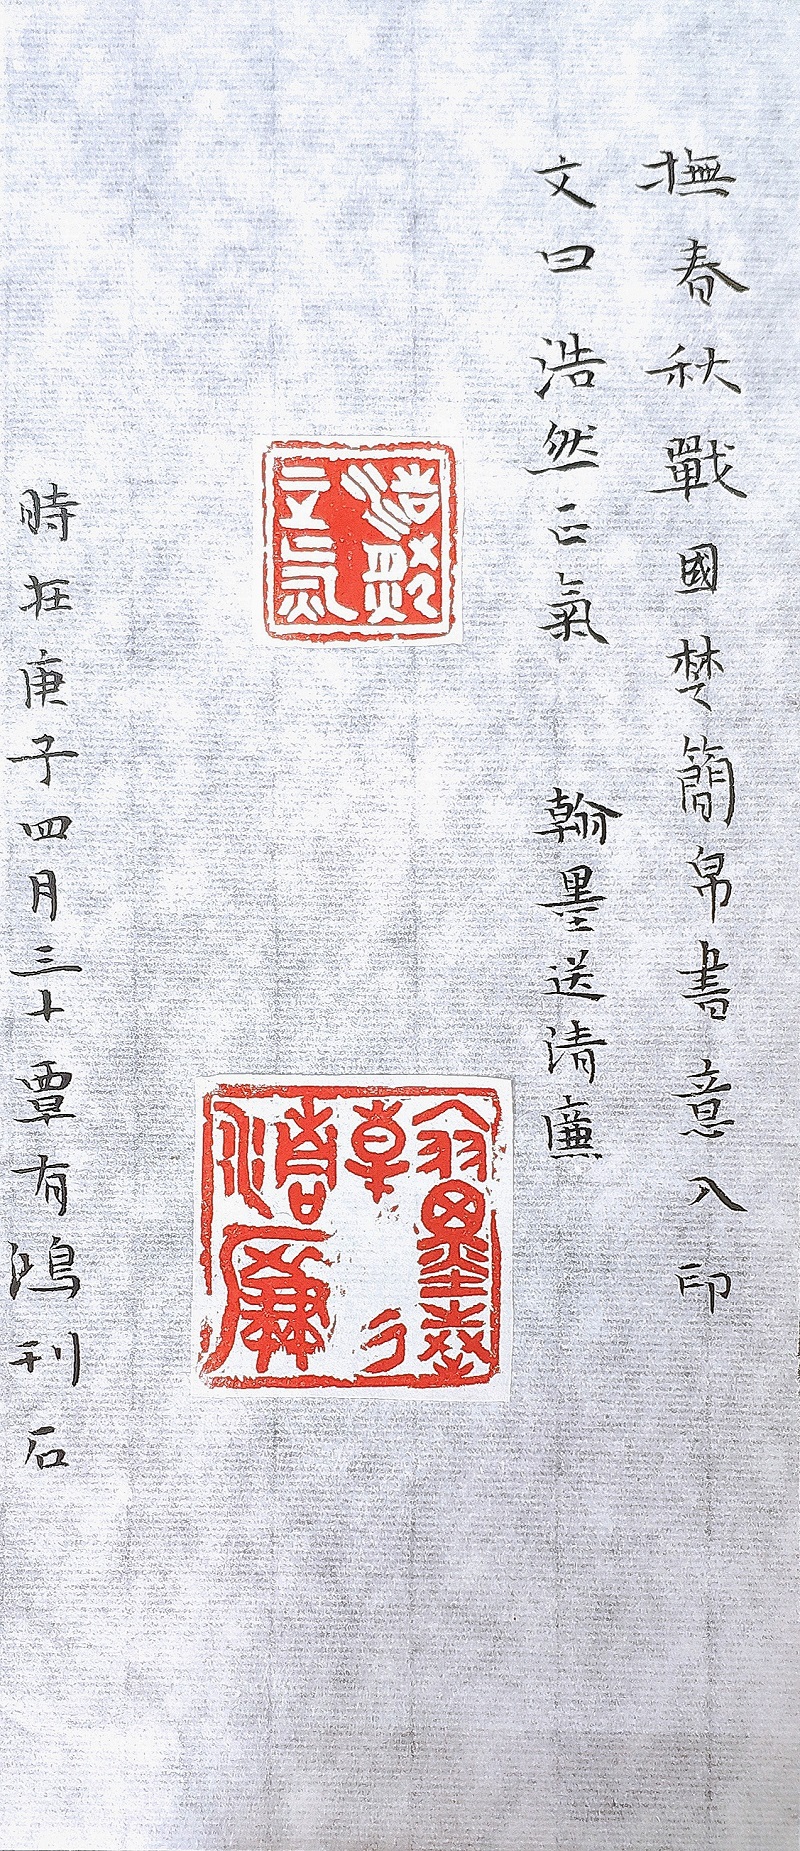 撫春秋戰國楚簡帛書意入印
文曰 浩然正氣 翰墨送清廉
浩然正氣
翰墨送清廉
時在庚子四月三十覃有鴻刊石